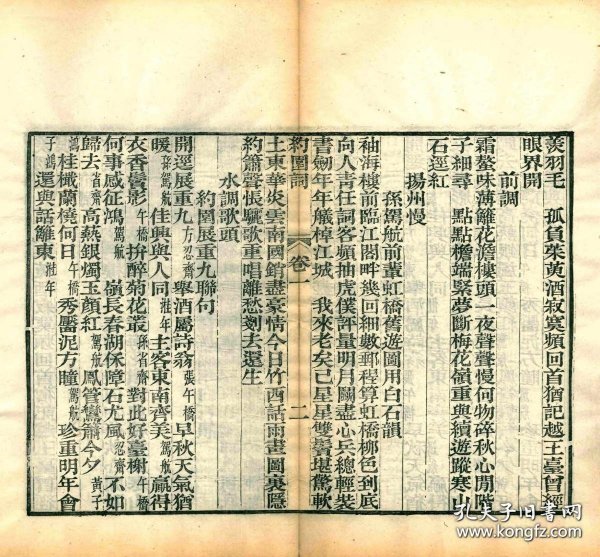 羨羽毛　孤負茱萸酒寂寞頻回首猶記越王臺曾經
眼界開
前調
霜螯味薄籬花澹樓頭一夜聲聲慢何物碎秋心閒階
子細尋　點點檐端緊夢斷梅花嶺重與續遊蹤寒山
石徑紅
揚州慢
孫駕航前輩虹橋舊遊圖用白石韻
袖海樓前臨江閣畔幾回細數郵程算虹橋柳色到底
向人青任詞客頻抽虎僕評量明月關盡心兵總輕裝
書劒年年艤棹江城　我來老矣已星星雙鬢堪驚軟
約園詞
卷一
二
土東華炎雲南國銷盡豪情今日竹西話雨畫圖裏隱
約簫聲悵驪歌重唱離愁剗去還生
水調歌頭
約園展重九聯句
開逕展重九方忍齋舉酒屬詩翁張午橋早秋天氣猶
暖孫駕航佳興與人同雄年主客東南齊美駕航贏得
衣香鬢影午橋拚醉菊花叢孫省齋對此好臺榭午橋
何事感征鴻駕航　嶺長春湖係障石尤風忍齋不如
歸去省齋高熱銀燭玉顏紅駕航鳳管鸞簫今夕黃子
鴻桂檝蘭橈何日午橋秀靨泥方曈駕航珍重明年會
子鴻還與話籬東雄年
孔夫子旧书网
www.kongfz.com